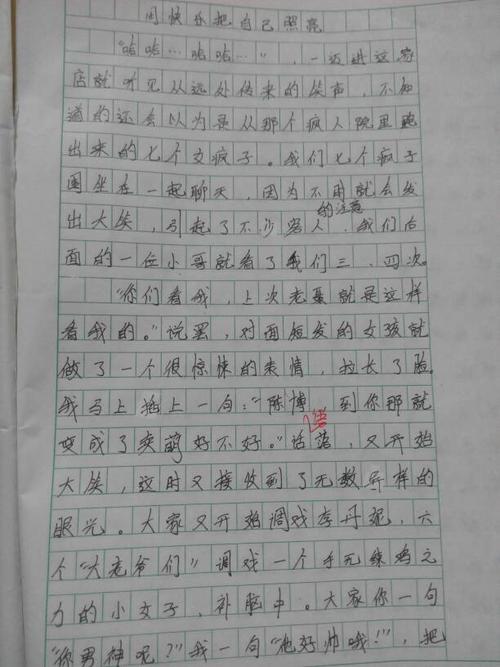 用快乐把自己照亮
“哈哈…哈哈…”，一迈进这家
店就听见从远处传来的笑声，不知
道的还会以为是从那个疯人院里跑
出来的七个女疯子。我们七个疯子
围坐在一起聊天，因为不时就会发
出大笑，引起了不少客人的注意，我们后
面的一位小哥就看了我们三、四次。
“你们看我，上次老聂就是这样
看我的。”说罢，对面短发的女孩就
做了一个很惊悚的表情，拉长了脸
我马上插上一句：“陈博，到你那就
变成了卖萌好不好。”话落，又开始
大笑，这时又接收到了无数异样的
眼光。大家又开始调戏李丹妮，六
个“大老爷们”调戏一个手无练鸡之
力的小女子，补脑中。大家你一句
“你男神呢？”我一句“他好帅哦！”，把